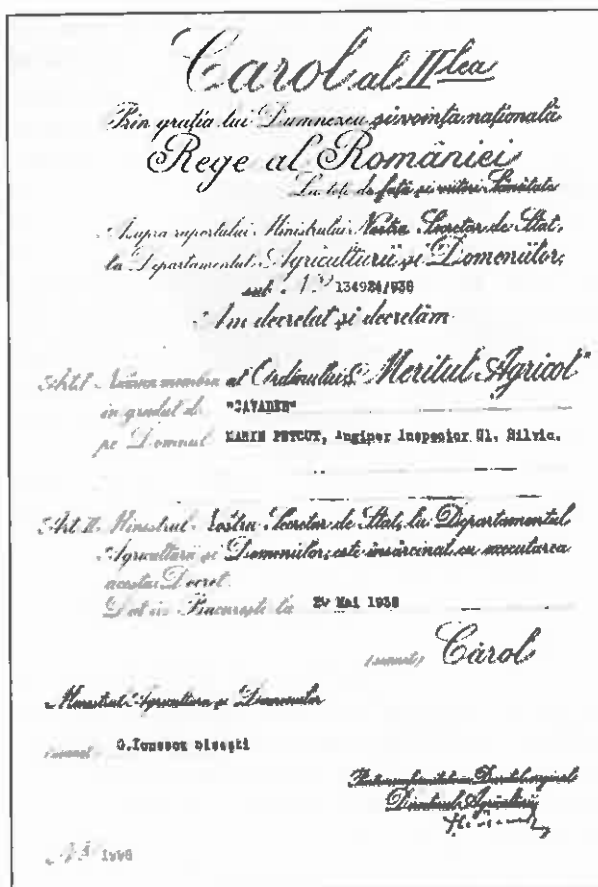 Carol al II lea
Prin grația lui Dumnezeu și voința națională
Rege al României
La toți de față și viitori Sănătate
Asupra raportului Ministrului Nostru Secretar de Stat,
la Departamentul Agriculturii și Domeniilor,
sub No 134924/938
Am decretat și decretăm
Art. I membru al Ordinului „Meritul Agricol"
in gradul de
pe Domnul MARIN PETCUT, Inginer Inspector Gl. Silvic.
Art II Ministrul Nostru Secretar de Stat, la Departamentul
Agriculturii și Domeniilor, este însărcinat cu executarea
acestui Decret.
Dat in București la Mai 1938
(semnat) Carol
Ministrul Agriculturii și Domeniilor
semnat G. Ionescu Sisești
Directorul Agriculturii